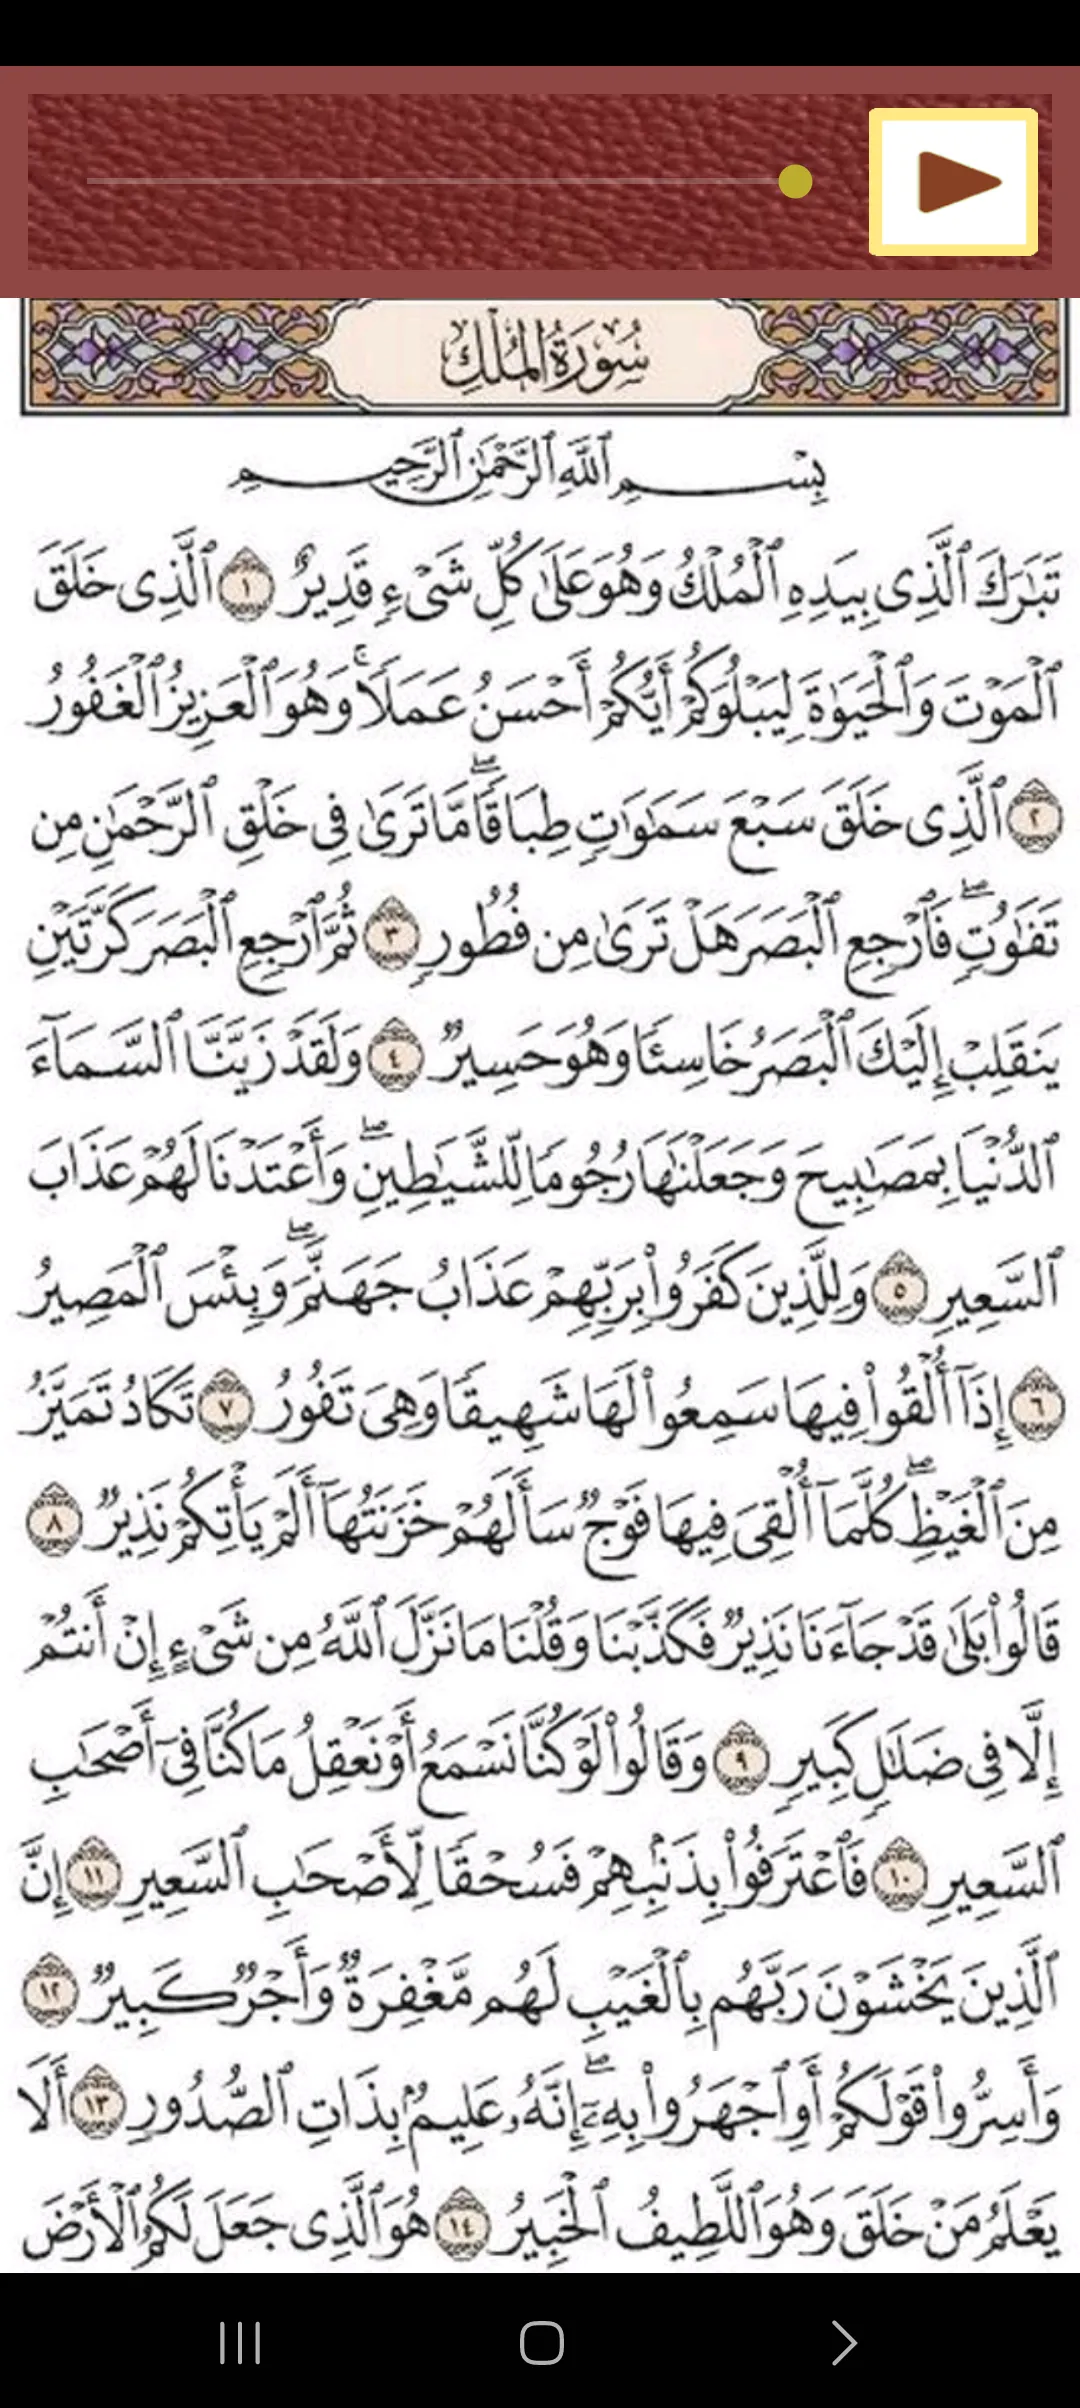 سُورَةُ الْمُلْكِ
بِسْمِ ٱللَّهِ ٱلرَّحْمَٰنِ ٱلرَّحِيمِ
تَبَٰرَكَ ٱلَّذِى بِيَدِهِ ٱلْمُلْكُ وَهُوَ عَلَىٰ كُلِّ شَىْءٍ قَدِيرٌ ١ ٱلَّذِى خَلَقَ
ٱلْمَوْتَ وَٱلْحَيَوٰةَ لِيَبْلُوَكُمْ أَيُّكُمْ أَحْسَنُ عَمَلًا ۚ وَهُوَ ٱلْعَزِيزُ ٱلْغَفُورُ
٢ ٱلَّذِى خَلَقَ سَبْعَ سَمَٰوَٰتٍ طِبَاقًا ۖ مَّا تَرَىٰ فِى خَلْقِ ٱلرَّحْمَٰنِ مِن
تَفَٰوُتٍ ۖ فَٱرْجِعِ ٱلْبَصَرَ هَلْ تَرَىٰ مِن فُطُورٍ ٣ ثُمَّ ٱرْجِعِ ٱلْبَصَرَ كَرَّتَيْنِ
يَنقَلِبْ إِلَيْكَ ٱلْبَصَرُ خَاسِئًا وَهُوَ حَسِيرٌ ٤ وَلَقَدْ زَيَّنَّا ٱلسَّمَآءَ
ٱلدُّنْيَا بِمَصَٰبِيحَ وَجَعَلْنَٰهَا رُجُومًا لِّلشَّيَٰطِينِ ۖ وَأَعْتَدْنَا لَهُمْ عَذَابَ
ٱلسَّعِيرِ ٥ وَلِلَّذِينَ كَفَرُوا۟ بِرَبِّهِمْ عَذَابُ جَهَنَّمَ ۖ وَبِئْسَ ٱلْمَصِيرُ
٦ إِذَآ أُلْقُوا۟ فِيهَا سَمِعُوا۟ لَهَا شَهِيقًا وَهِىَ تَفُورُ ٧ تَكَادُ تَمَيَّزُ
مِنَ ٱلْغَيْظِ ۖ كُلَّمَآ أُلْقِىَ فِيهَا فَوْجٌ سَأَلَهُمْ خَزَنَتُهَآ أَلَمْ يَأْتِكُمْ نَذِيرٌ ٨
قَالُوا۟ بَلَىٰ قَدْ جَآءَنَا نَذِيرٌ فَكَذَّبْنَا وَقُلْنَا مَا نَزَّلَ ٱللَّهُ مِن شَىْءٍ إِنْ أَنتُمْ
إِلَّا فِى ضَلَٰلٍ كَبِيرٍ ٩ وَقَالُوا۟ لَوْ كُنَّا نَسْمَعُ أَوْ نَعْقِلُ مَا كُنَّا فِىٓ أَصْحَٰبِ
ٱلسَّعِيرِ ١٠ فَٱعْتَرَفُوا۟ بِذَنۢبِهِمْ فَسُحْقًا لِّأَصْحَٰبِ ٱلسَّعِيرِ ١١ إِنَّ
ٱلَّذِينَ يَخْشَوْنَ رَبَّهُم بِٱلْغَيْبِ لَهُم مَّغْفِرَةٌ وَأَجْرٌ كَبِيرٌ ١٢
وَأَسِرُّوا۟ قَوْلَكُمْ أَوِ ٱجْهَرُوا۟ بِهِۦٓ ۖ إِنَّهُۥ عَلِيمٌۢ بِذَاتِ ٱلصُّدُورِ ١٣ أَلَا
يَعْلَمُ مَنْ خَلَقَ وَهُوَ ٱللَّطِيفُ ٱلْخَبِيرُ ١٤ هُوَ ٱلَّذِى جَعَلَ لَكُمُ ٱلْأَرْضَ